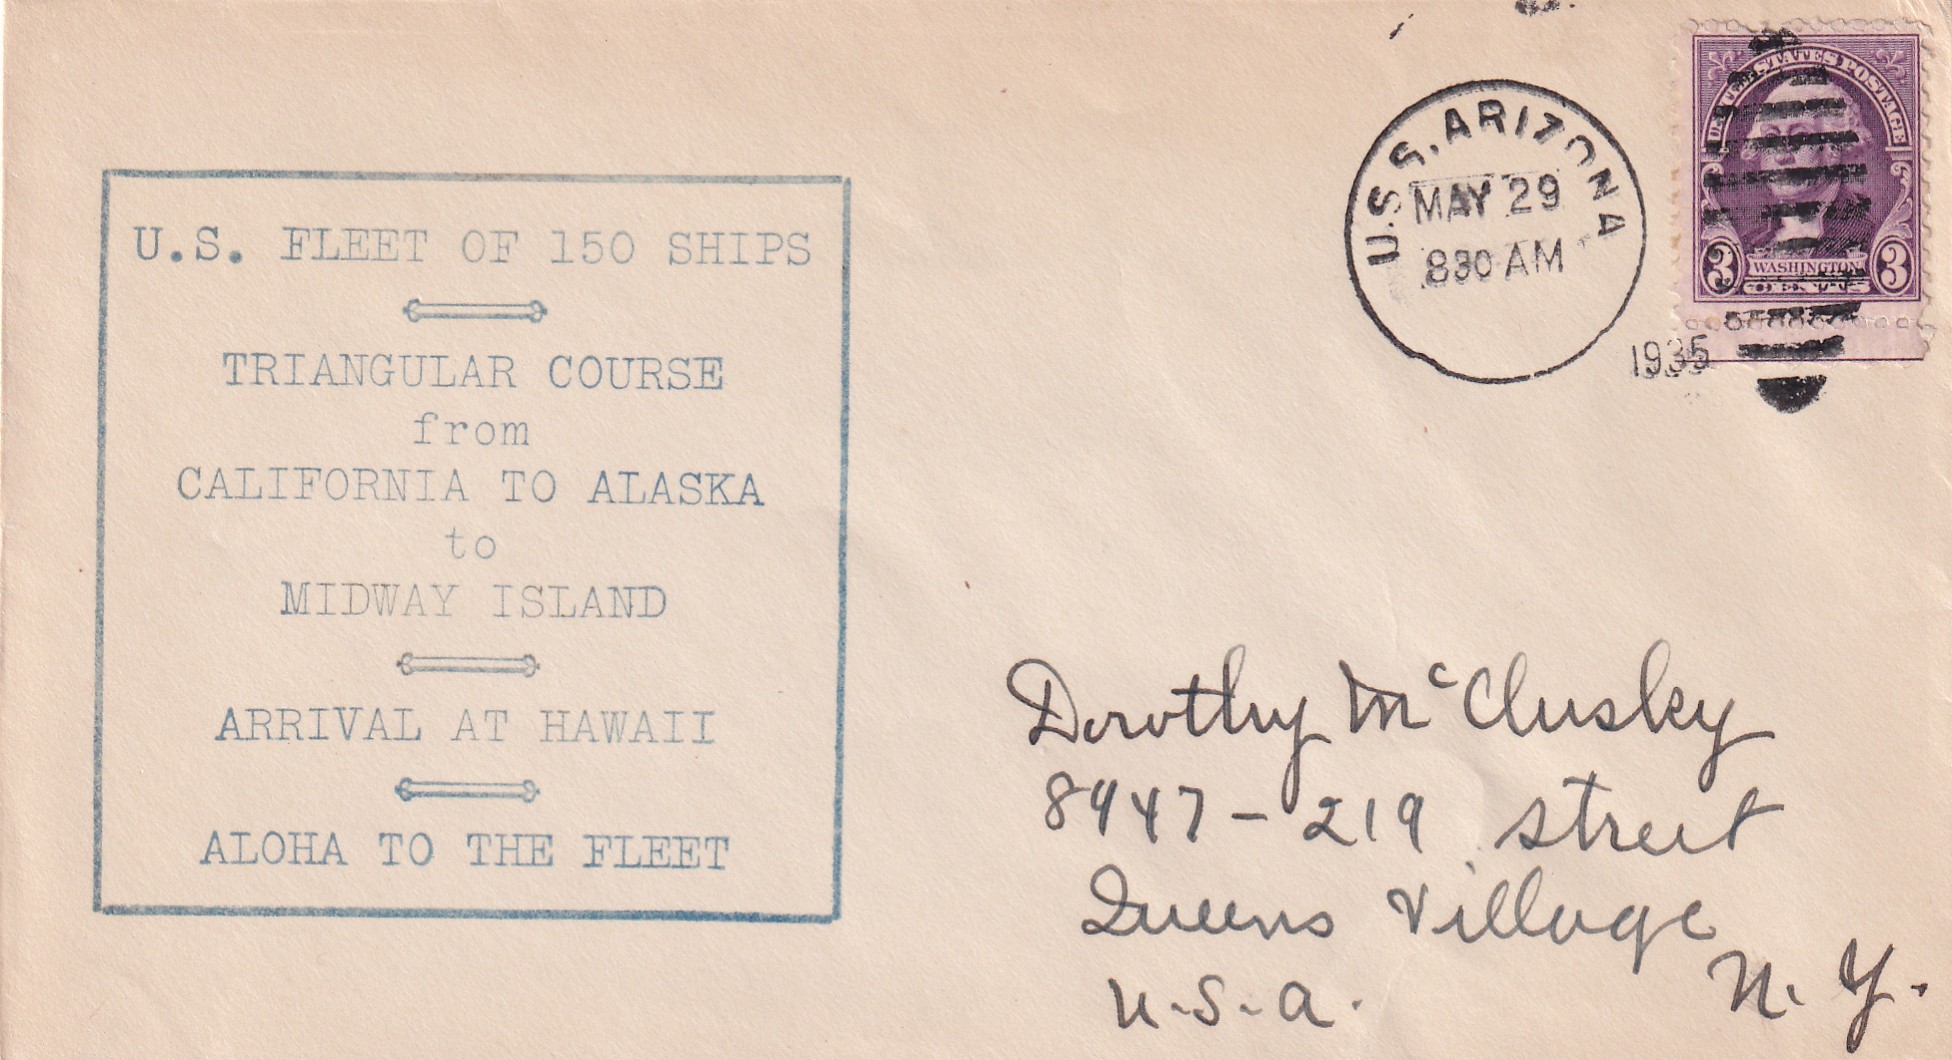 U.S. FLEET OF 150 SHIPS
TRIANGULAR COURSE
from
CALIFORNIA TO ALASKA
to
MIDWAY ISLAND
ARRIVAL AT HAWAII
ALOHA TO THE FLEET
U.S.S. ARIZONA
MAY 29
830 AM
1935
UNITED STATES POSTAGE
3 WASHINGTON 3
Dorothy McClusky
8947-219 street
Queens Village
N.Y.
U.S.A.